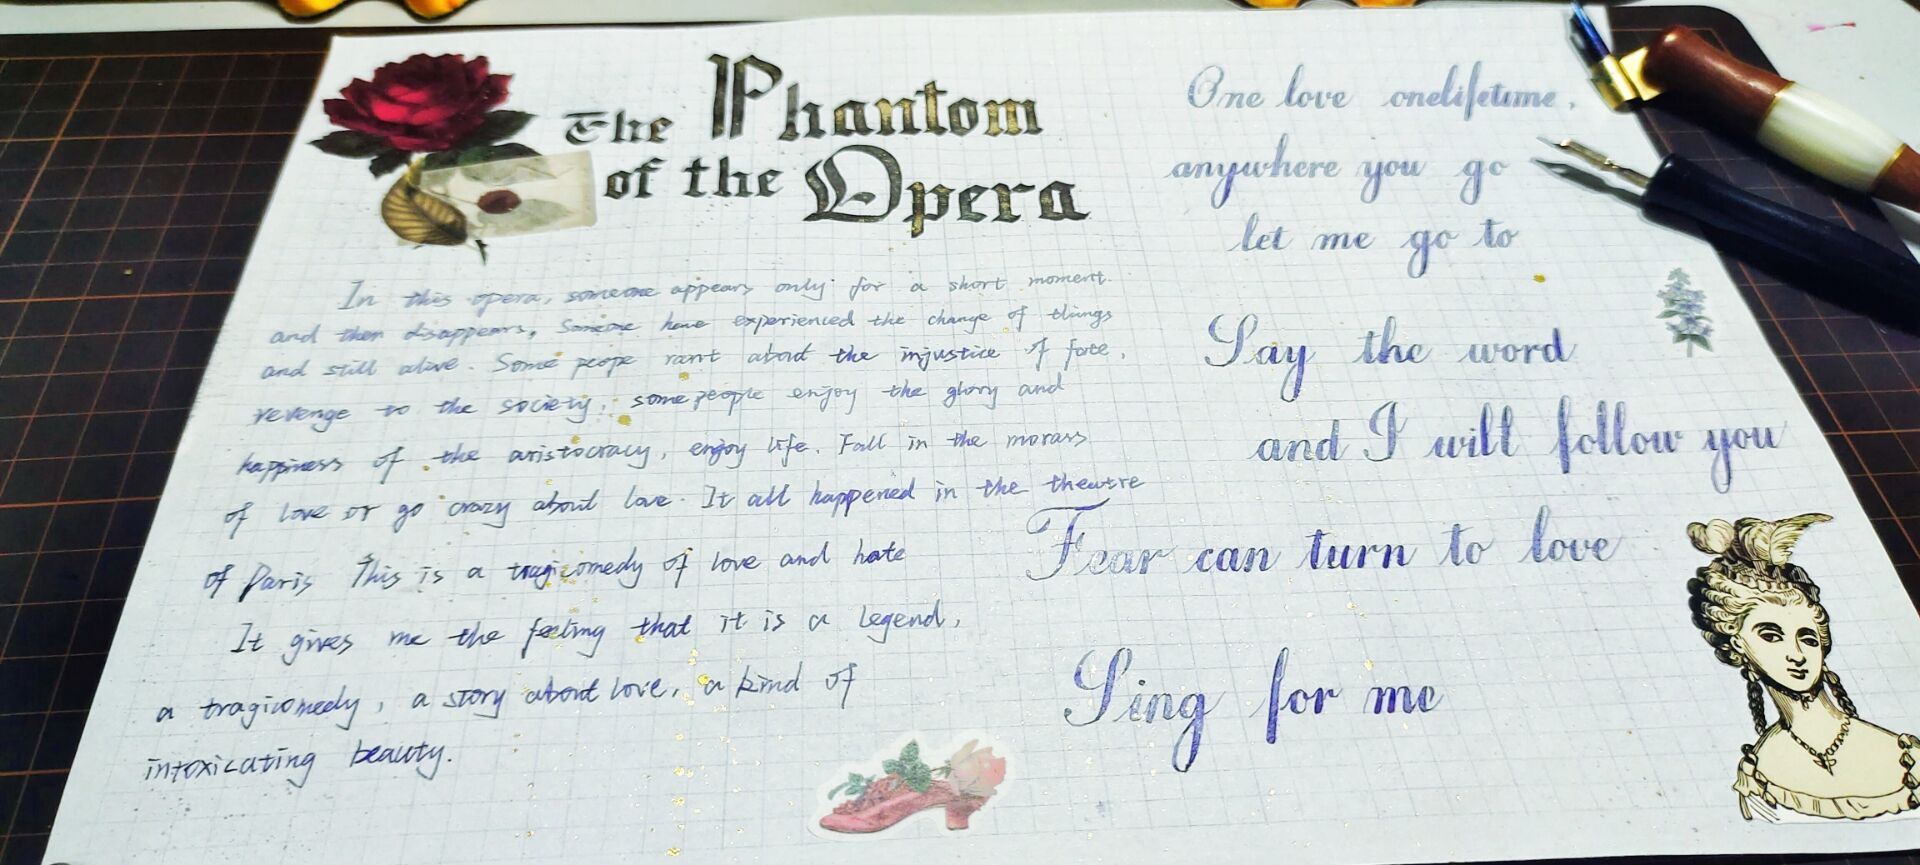 The Phantom
of the Opera
In this opera, someone appears only for a short moment.
and then disappears, Someone have experienced the change of things
and still alive. Some peope rant about the injustice of fate,
revenge to the society, some people enjoy the glory and
happiness of the aristocracy, enjoy life. Fall in the morass
of love or go crazy about love. It all happened in the theatre
of Paris This is a tragicomedy of love and hate
It gives me the feeling that it is a legend,
a tragicomedy, a story about love, a kind of
intoxicating beauty.
One love onelifetime,
anywhere you go
let me go to
Say the word
and I will follow you
Fear can turn to love
Sing for me